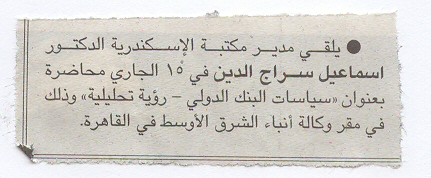 ● يلقي مدير مكتبة الإسكندرية الدكتور
اسماعيل سراج الدين في ١٥ الجاري محاضرة
بعنوان «سياسات البنك الدولي – رؤية تحليلية» وذلك
في مقر وكالة أنباء الشرق الأوسط في القاهرة.